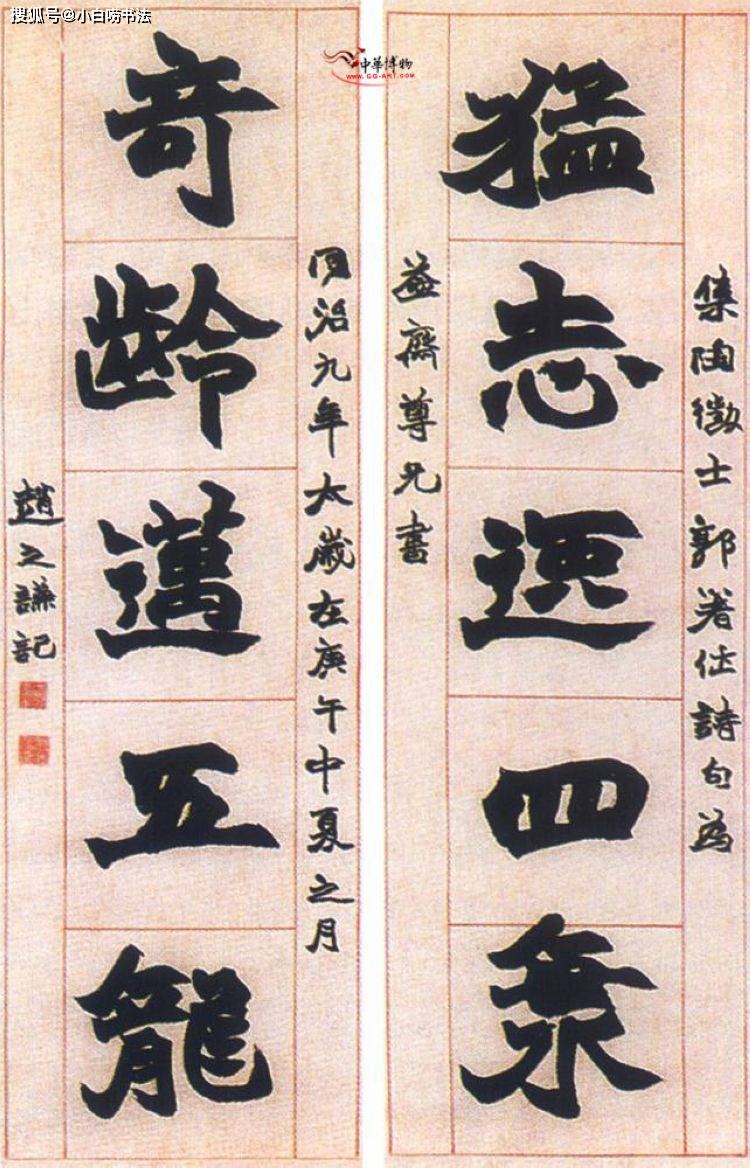 搜狐号@小白唠书法
中華博物
WWW.GG-ART.COM
集陶徵士郭著作詩句為
猛志逸四海
益齋尊兄書
同治九年太歲在庚午中夏之月
奇齡邁五龍
趙之謙記